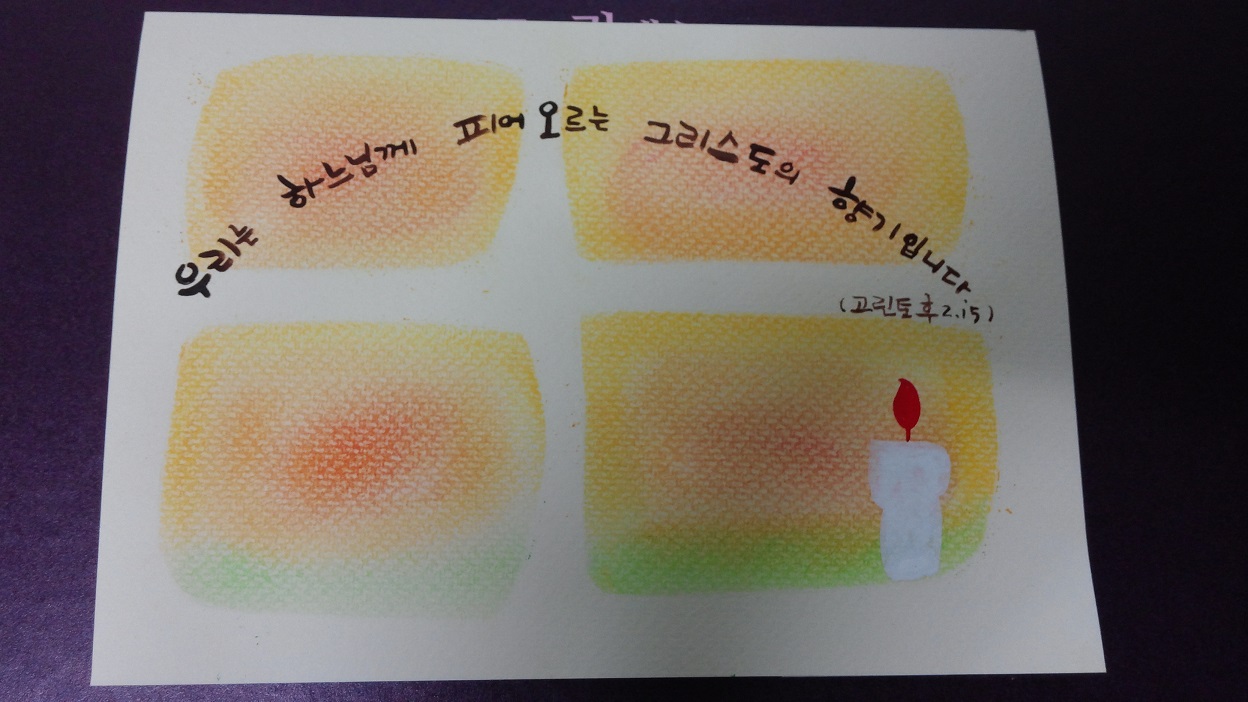 우리는 하느님께 피어 오르는 그리스도의 향기입니다
(고린토후 2.15)